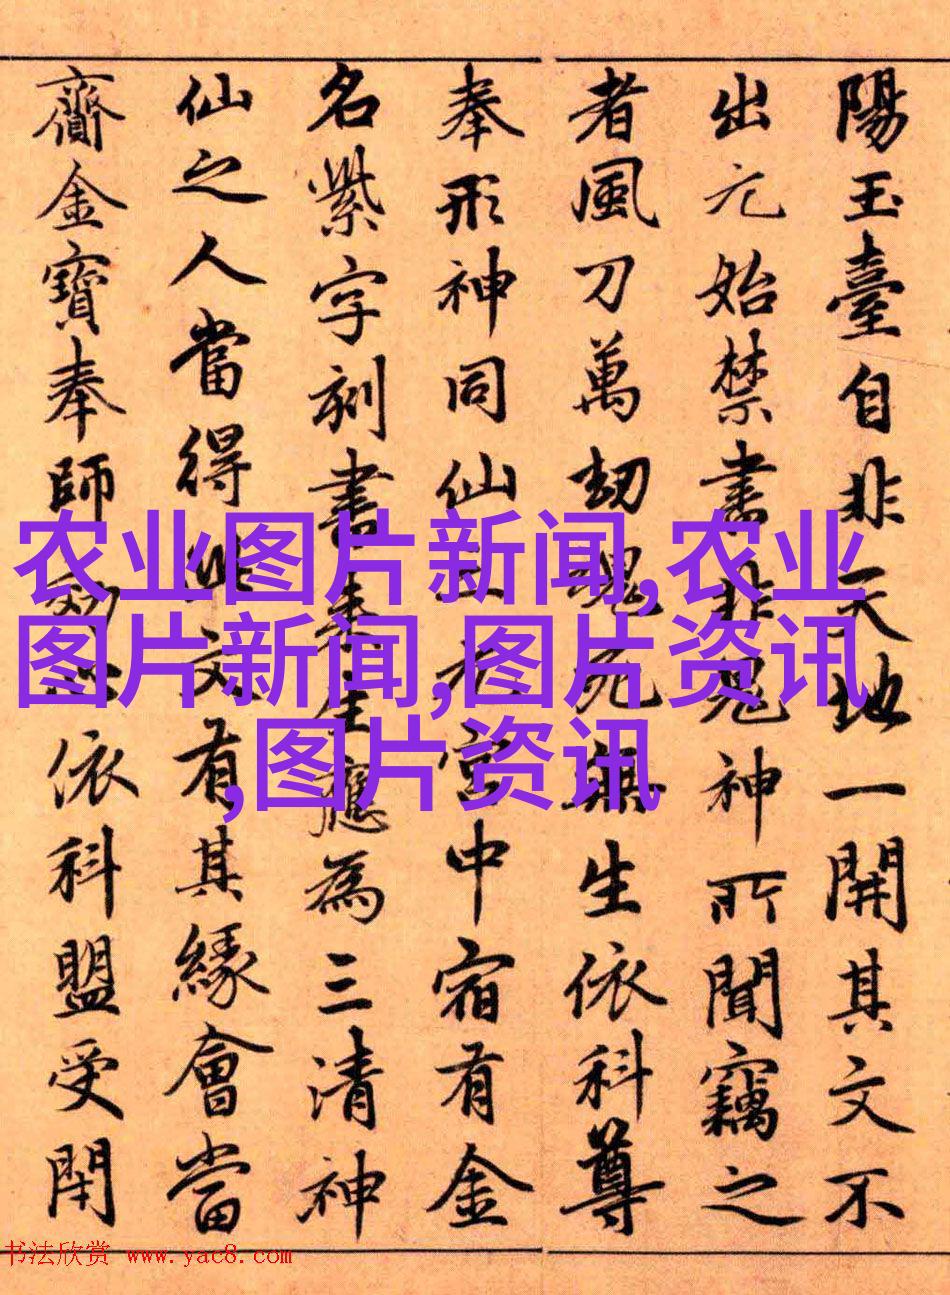 陽玉臺自非天地一開其文不
出元始禁書非鬼神所聞竊之
者風刀萬劫魂死無生依科尊
奉形神同仙宮中宿有金
名紫字刻書來生應為三清神
仙之人當得此文有其緣會當
齎金寶奉師依科盟受閇
农业图片新闻,农业
图片新闻,图片资讯
,图片资讯
书法欣赏 www.yac8.com